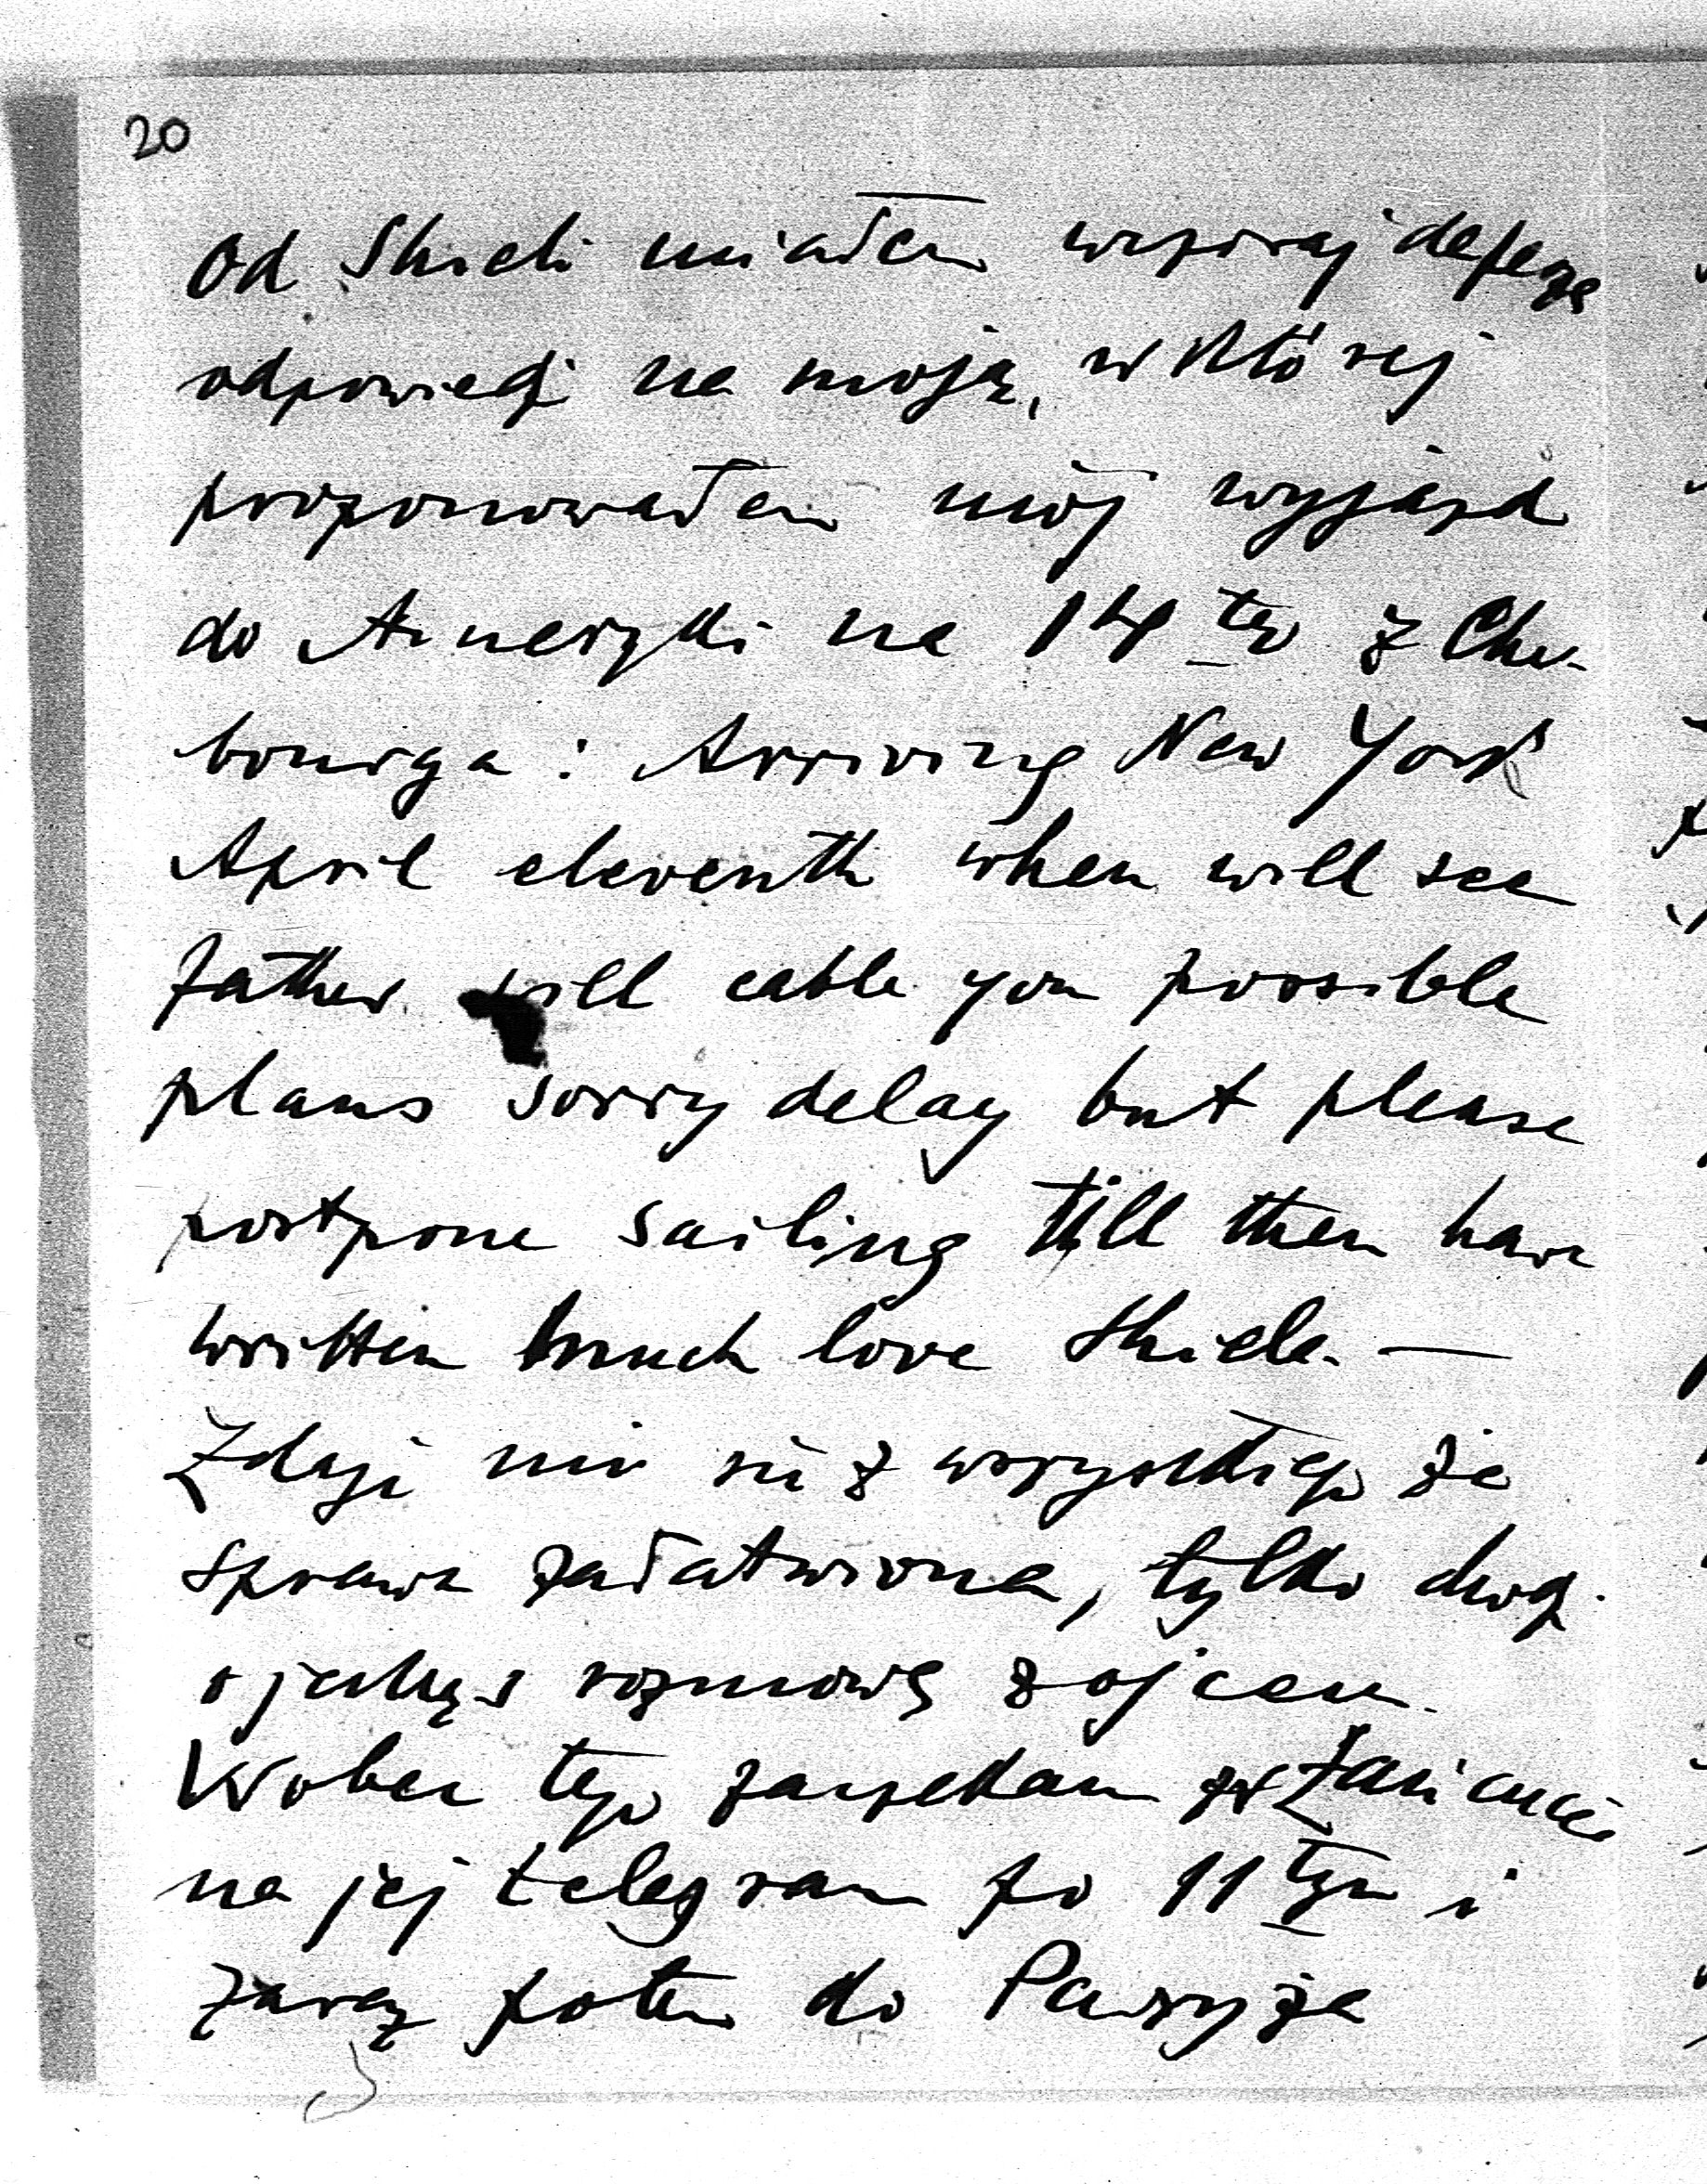 20
Od Shieli miałem wczoraj depeszę
odpowiedź na moją, w której
proponowałem mój wyjazd
do Ameryki na 14 tgo z Cher-
bourga: Arriving New York
April eleventh when will see
father will cable you possible
plans sorry delay but please
postpone sailing till then have
written much love Shiela. —
Zdaje mi się z wszystkiego że
sprawa załatwiona, tylko chodzi
o jakąś rozmowę z ojcem.
Wobec tego zaczekam w Łańcucie
na jej telegram po 11 tym i
zaraz potem do Paryża